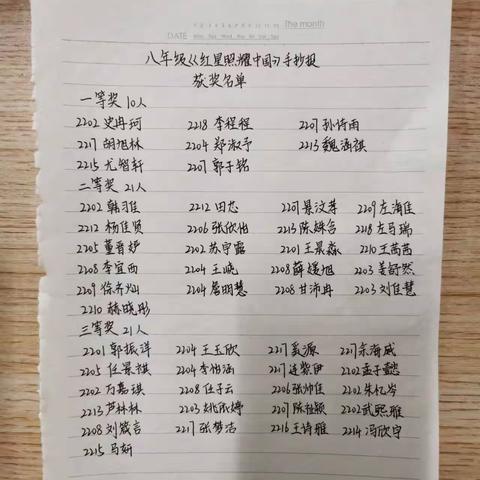 The month
DATE
八年级《红星照耀中国》手抄报
获奖名单
一等奖 10人
2202 史冉珂 2218 李程程 2207 孙诗雨
2217 胡旭林 2204 郑淑予 2213 魏涵祺
2215 尤智轩 2207 郭子铭
二等奖 21人
2202 韩习佳 2212 田芯 2207 2209 左海佳
2212 杨佳贤 2206 张欣怡 2213 陈婇含 2218 左马瑞
2205 董香妤 2202 苏宇露 2201 王昊淼 2210 王茜茜
2208 李宜西 2204 王晓 2208 薛媛旭 2203 姜舒然
2209 徐卉灿 2204 詹明慧 2208 甘沛冉 2203 刘佳慧
2210 赫晓彤
三等奖 21人
2201 郭振洋 2204 王玉欣 2217 奚源 2217 宗海威
2205 任景祺 2204 李怡涵 2217 2202 孟子懿
2202 万嘉琪 2208 任子云 2206 张帅佳 2202 朱忆岑
2213 芦林林 2203 姚欣婷 2207 陈桂颖 2202 武熙雅
2208 刘箴言 2217 张梦洁 2216 王诗雅 2214 冯欣宇
2215 马妍